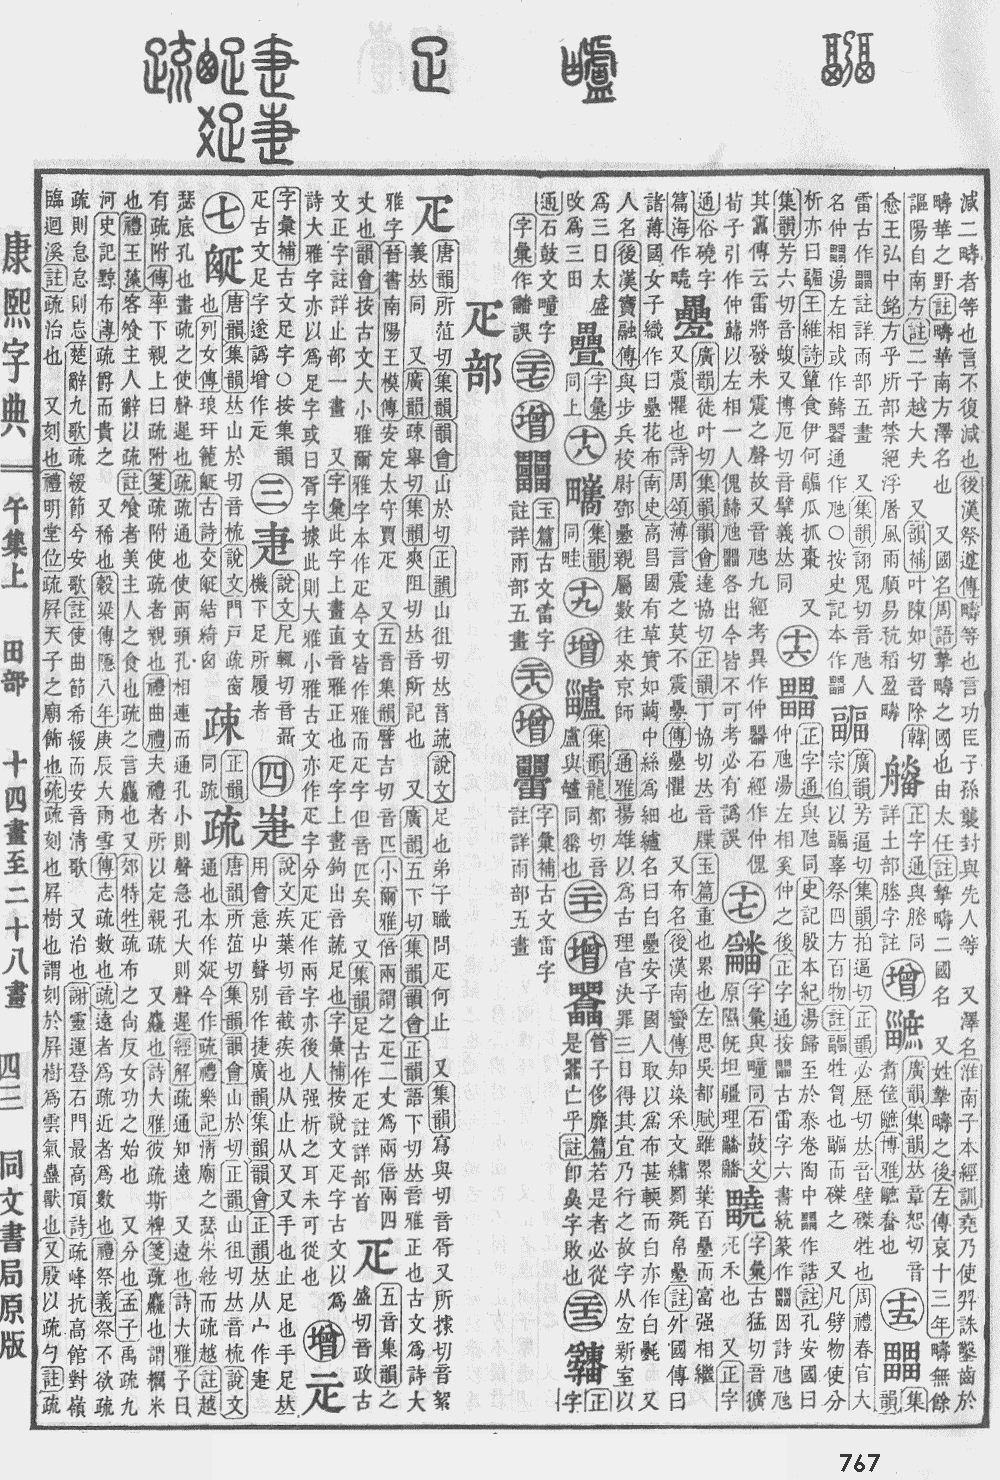 減二畤者等也言不復減也後漢祭遵傳疇等也言功臣子孫襲封與先人等 又澤名淮南子本經訓堯乃使羿誅鑿齒於
疇華之野註疇華南方澤名也 又國名周語摯疇之國也由太任註摯疇二國名 又姓摯疇之後左傳哀十三年疇無餘
謳陽自南方註二子越大夫 又韻補叶陳如切音除韓
愈王弘中銘方乎所部禁絕浮屠風雨順易秔稻盈疇
正字通與塍同
詳土部塍字註
增
廣韻集韻𠀤章恕切音
十五
集
韻
雷古作畾註詳雨部五畫 又集韻詡鬼切音虺人
名仲畾湯左相或作蘬嚚通作虺○按史記本作
畐
廣韻芳逼切集韻拍逼切正韻必歷切𠀤音璧磔牲也周禮春官大
宗伯以疈辜祭四方百物註疈牲胷也疈而磔之 又凡劈物使分
析亦曰疈王維詩簞食伊何疈瓜抓棗 又
集韻芳六切音蝮又博厄切音擘義𠀤同
十六
正字通與虺同史記殷本紀湯歸至於泰卷陶中作誥註孔安國曰
仲虺湯左相奚仲之後正字通按古雷字六書統篆作因詩虺虺
其靁傳云雷將發未震之聲故又音虺九經考異作仲嚚石經作仲傀
荀子引作仲蘬以左相一人傀蘬虺各出今皆不可考必有譌誤
十七
字彙與疃同石鼓文
原隰旣坦疆理
字彙古猛切音獷
死禾也 又正字
通俗磽字
篇海作畹
疊
廣韻徒叶切集韻韻會達協切正韻丁協切𠀤音牒玉篇重也累也左思吳都賦雖累葉百疊而富强相繼
又震懼也詩周頌薄言震之莫不震疊傳疊懼也 又布名後漢南蠻傳知染采文繡罽毲帛疊註外國傳曰
諸薄國女子織作白疊花布南史高昌國有草實如繭中絲爲細纑名曰白疊安子國人取以爲布甚輭而白亦作白㲲又
人名後漢竇融傳與步兵校尉鄧疊親屬數往來京師 通雅揚雄以爲古理官決罪三日得其宜乃行之故字从宜新室以
爲三日太盛
改爲三田
疉
字彙
同上
十八
集韻
同畦
十九
增
集韻龍都切音
盧與
二十
增
管子侈靡篇若是者必從
是亡乎註卽字敗也
二十三
正
字
通石鼓文疃字
字彙作誤
二十七
增
玉篇古文雷字
註詳雨部五畫
二十八
增
字彙補古文雷字
註詳雨部五畫
疋部
疋
唐韻所菹切集韻韻會山於切正韻山徂切𠀤音蔬說文足也弟子職問疋何止 又集韻寫與切音胥又所據切音絮
義𠀤同 又廣韻疎舉切集韻爽阻切𠀤音所記也 又廣韻五下切集韻韻會正韻語下切𠀤音雅正也古文爲詩大
雅字晉書南陽王模傳安定太守賈疋 又五音集韻譬吉切音匹小爾雅倍兩謂之疋二丈爲兩倍兩四
丈也韻會按古文大小雅爾雅字本作疋今文皆作雅而疋字但音匹矣 又集韻足古作疋註詳部首
疋
五音集韻之
盛切音政古
文正字註詳止部一畫 又字彙此字上畫直音雅正也疋字上畫鉤出音蔬足也字彙補按說文疋字古文以爲
詩大雅字亦以爲足字或曰胥字據此則大雅小雅古文亦作疋字分疋疋作兩字亦後人强析之耳未可從也
增
字彙補古文足字○按集韻
疋古文足字遂譌增作疋
三
疌
說文尼輒切音聶
機下足所履者
四
疌
說文疾葉切音截疾也从止从又又手也止足也手足𠀤
用會意屮聲別作捷廣韻集韻韻會正韻𠀤从宀作疌
七
唐韻集韻𠀤山於切音梳說文門戶疏窗
也列女傳琅玕籠疏古詩交疏結綺囪
疎
正韻
同疏
疏
唐韻所菹切集韻韻會山於切正韻山徂切𠀤音梳說文
通也本作今作疏禮樂記淸廟之瑟朱絃而疏越註越
瑟底孔也畫疏之使聲遲也疏疏通也使兩頭孔相連而通孔小則聲急孔大則聲遲經解疏通知遠 又遠也詩大雅子曰
有疏附傳率下親上曰疏附箋疏附使疏者親也禮曲禮夫禮者所以定親疏 又麤也詩大雅彼疏斯粺箋疏麤也謂糲米
也禮玉藻客飱主人辭以疏註飱者美主人之食也疏之言麤也又郊特牲疏布之尙反女功之始也 又分也孟子禹疏九
河史記黥布傳疏爵而貴之 又稀也穀梁傳隱八年庚辰大雨雪傳志疏數也疏遠者爲疏近者爲數也禮祭義祭不欲疏
疏則怠怠則忘楚辭九歌疏緩節兮安歌註使曲節希緩而安音淸歌 又治也謝靈運登石門最高頂詩疏峰抗高館對嶺
臨迴溪註疏治也 又刻也禮明堂位疏屛天子之廟飾也疏疏刻也屛樹也謂刻於屛樹爲雲氣蟲獸也又殷以疏勺註疏
康熙字典 午集上 田部 十四畫至二十八畫 四三 同文書局原版
767